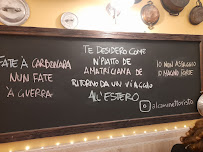 FATE À CARBONARA
NUN FATE
'A GUERRA
TE DESIDERO COME
N'PIATTO DE
AMATRICIANA DE
RITORNO DA UN VIAGGIO
ALL'ESTERO
IO NON ASSAGGIO
O MAGNO FORTE